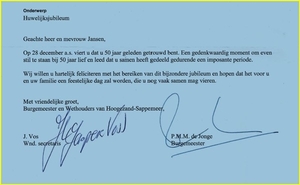 Onderwerp
Huwelijksjubileum
Geachte heer en mevrouw Jansen,
Op 28 december a.s. viert u dat u 50 jaar geleden getrouwd bent. Een gedenkwaardig moment om even
stil te staan bij 50 jaar lief en leed dat u samen heeft gedeeld gedurende een imposante periode.
Wij willen u hartelijk feliciteren met het bereiken van dit bijzondere jubileum en hopen dat het voor u
en uw familie een feestelijke dag zal worden, die u nog vaak samen mag vieren.
Met vriendelijke groet,
Burgemeester en Wethouders van Hoogezand-Sappemeer,
J. Vos
Wnd. secretaris
P.M.M. de Jonge
Burgemeester